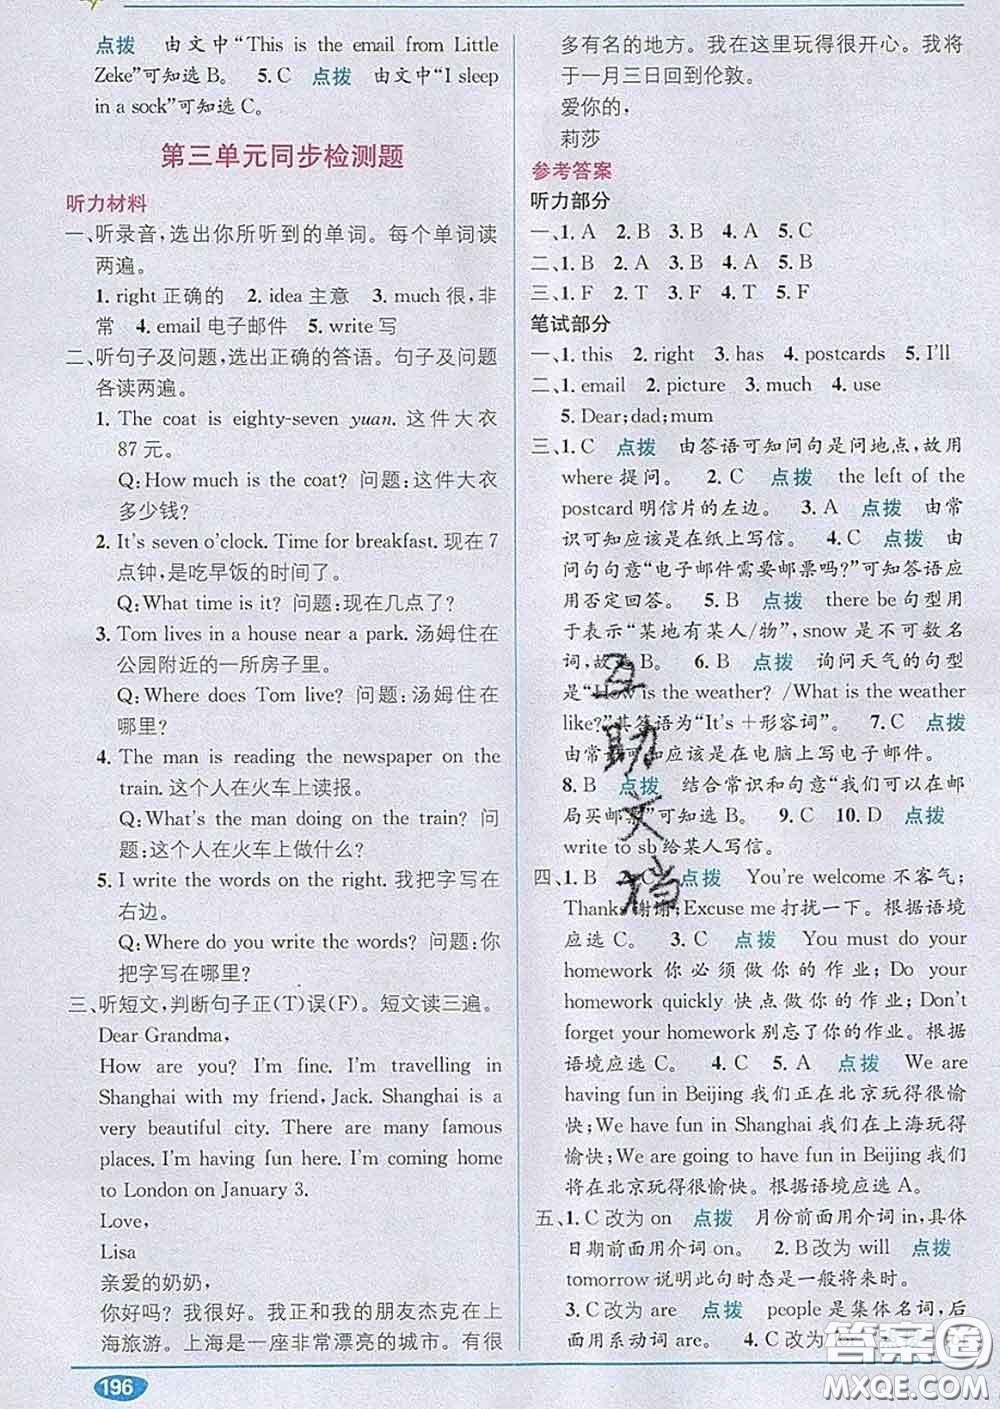 点拨 由文中“This is the email from Little
Zeke”可知选B。 5. C 点拨 由文中“I sleep
in a sock”可知选C。
第三单元同步检测题
听力材料
一、听录音,选出你所听到的单词。每个单词读
两遍。
1. right 正确的 2. idea 主意 3. much 很,非
常 4. email 电子邮件 5. write 写
二、听句子及问题,选出正确的答语。句子及问题
各读两遍。
1. The coat is eighty-seven yuan. 这件大衣
87 元。
Q:How much is the coat? 问题:这件大衣
多少钱?
2. It's seven o'clock. Time for breakfast. 现在 7
点钟,是吃早饭的时间了。
Q:What time is it? 问题:现在几点了?
3. Tom lives in a house near a park. 汤姆住在
公园附近的一所房子里。
Q:Where does Tom live? 问题:汤姆住在
哪里?
4. The man is reading the newspaper on the
train. 这个人在火车上读报。
Q:What's the man doing on the train? 问
题:这个人在火车上做什么?
5. I write the words on the right. 我把字写在
右边。
Q:Where do you write the words? 问题:你
把字写在哪里?
三、听短文,判断句子正(T)误(F)。短文读三遍。
Dear Grandma,
How are you? I'm fine. I'm travelling in
Shanghai with my friend, Jack. Shanghai is a
very beautiful city. There are many famous
places. I'm having fun here. I'm coming home
to London on January 3.
Love,
Lisa
亲爱的奶奶,
你好吗? 我很好。我正和我的朋友杰克在上
海旅游。上海是一座非常漂亮的城市。有很
196
多有名的地方。我在这里玩得很开心。我将
于一月三日回到伦敦。
爱你的,
莉莎
参考答案
听力部分
一、1. A 2. B 3. B 4. A 5. C
二、1. B 2. A 3. B 4. A 5. B
三、1. F 2. T 3. F 4. T 5. F
笔试部分
一、1. this 2. right 3. has 4. postcards 5. I'll
二、1. email 2. picture 3. much 4. use
5. Dear;dad;mum
三、1. C 点拨 由答语可知问句是问地点,故用
where 提问。 2. C 点拨 the left of the
postcard 明信片的左边。 3. A 点拨 由常
识可知应该是在纸上写信。 4. C 点拨 由
问句句意“电子邮件需要邮票吗?”可知答语应
用否定回答。 5. B 点拨 there be 句型用
于表示“某地有某人/物”,snow 是不可数名
词,故选B。 6. B 点拨 询问天气的句型
是“How is the weather? /What is the weather
like?”其答语为“It's +形容词”。 7. C 点拨
由常识可知应该是在电脑上写电子邮件。
8. B 点拨 结合常识和句意“我们可以在邮
局买邮票”可知选B。 9. C 10. D 点拨
write to sb 给某人写信。
四、1. B 2. C 点拨 You're welcome 不客气;
Thanks 谢谢;Excuse me 打扰一下。根据语境
应选 C。 3. C 点拨 You must do your
homework 你必须做你的作业;Do your
homework quickly 快点做你的作业;Don't
forget your homework 别忘了你的作业。根据
语境应选 C。 4. C 5. A 点拨 We are
having fun in Beijing 我们正在北京玩得很愉
快;We have fun in Shanghai 我们在上海玩得
愉快;We are going to have fun in Beijing 我们
将在北京玩得很愉快。根据语境应选A。
五、1. C 改为 on 点拨 月份前面用介词 in,具体
日期前面用介词 on。 2. B 改为 will 点拨
tomorrow 说明此句时态是一般将来时。
3. C 改为 are 点拨 people 是集体名词,后
面用系动词 are。 4. C 改为
互助文档
答案圈
MXQE.COM